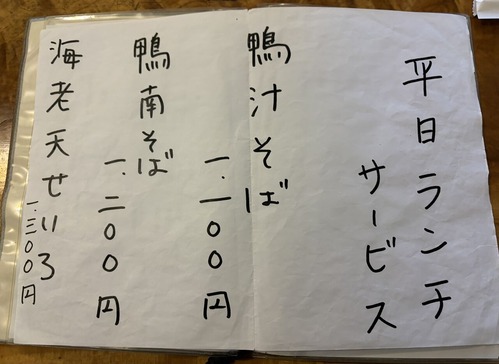 平日ランチ
サービス
鴨汁そば
一、一〇〇円
鴨南そば
一、二〇〇円
海老天せいろ
一、三〇〇円